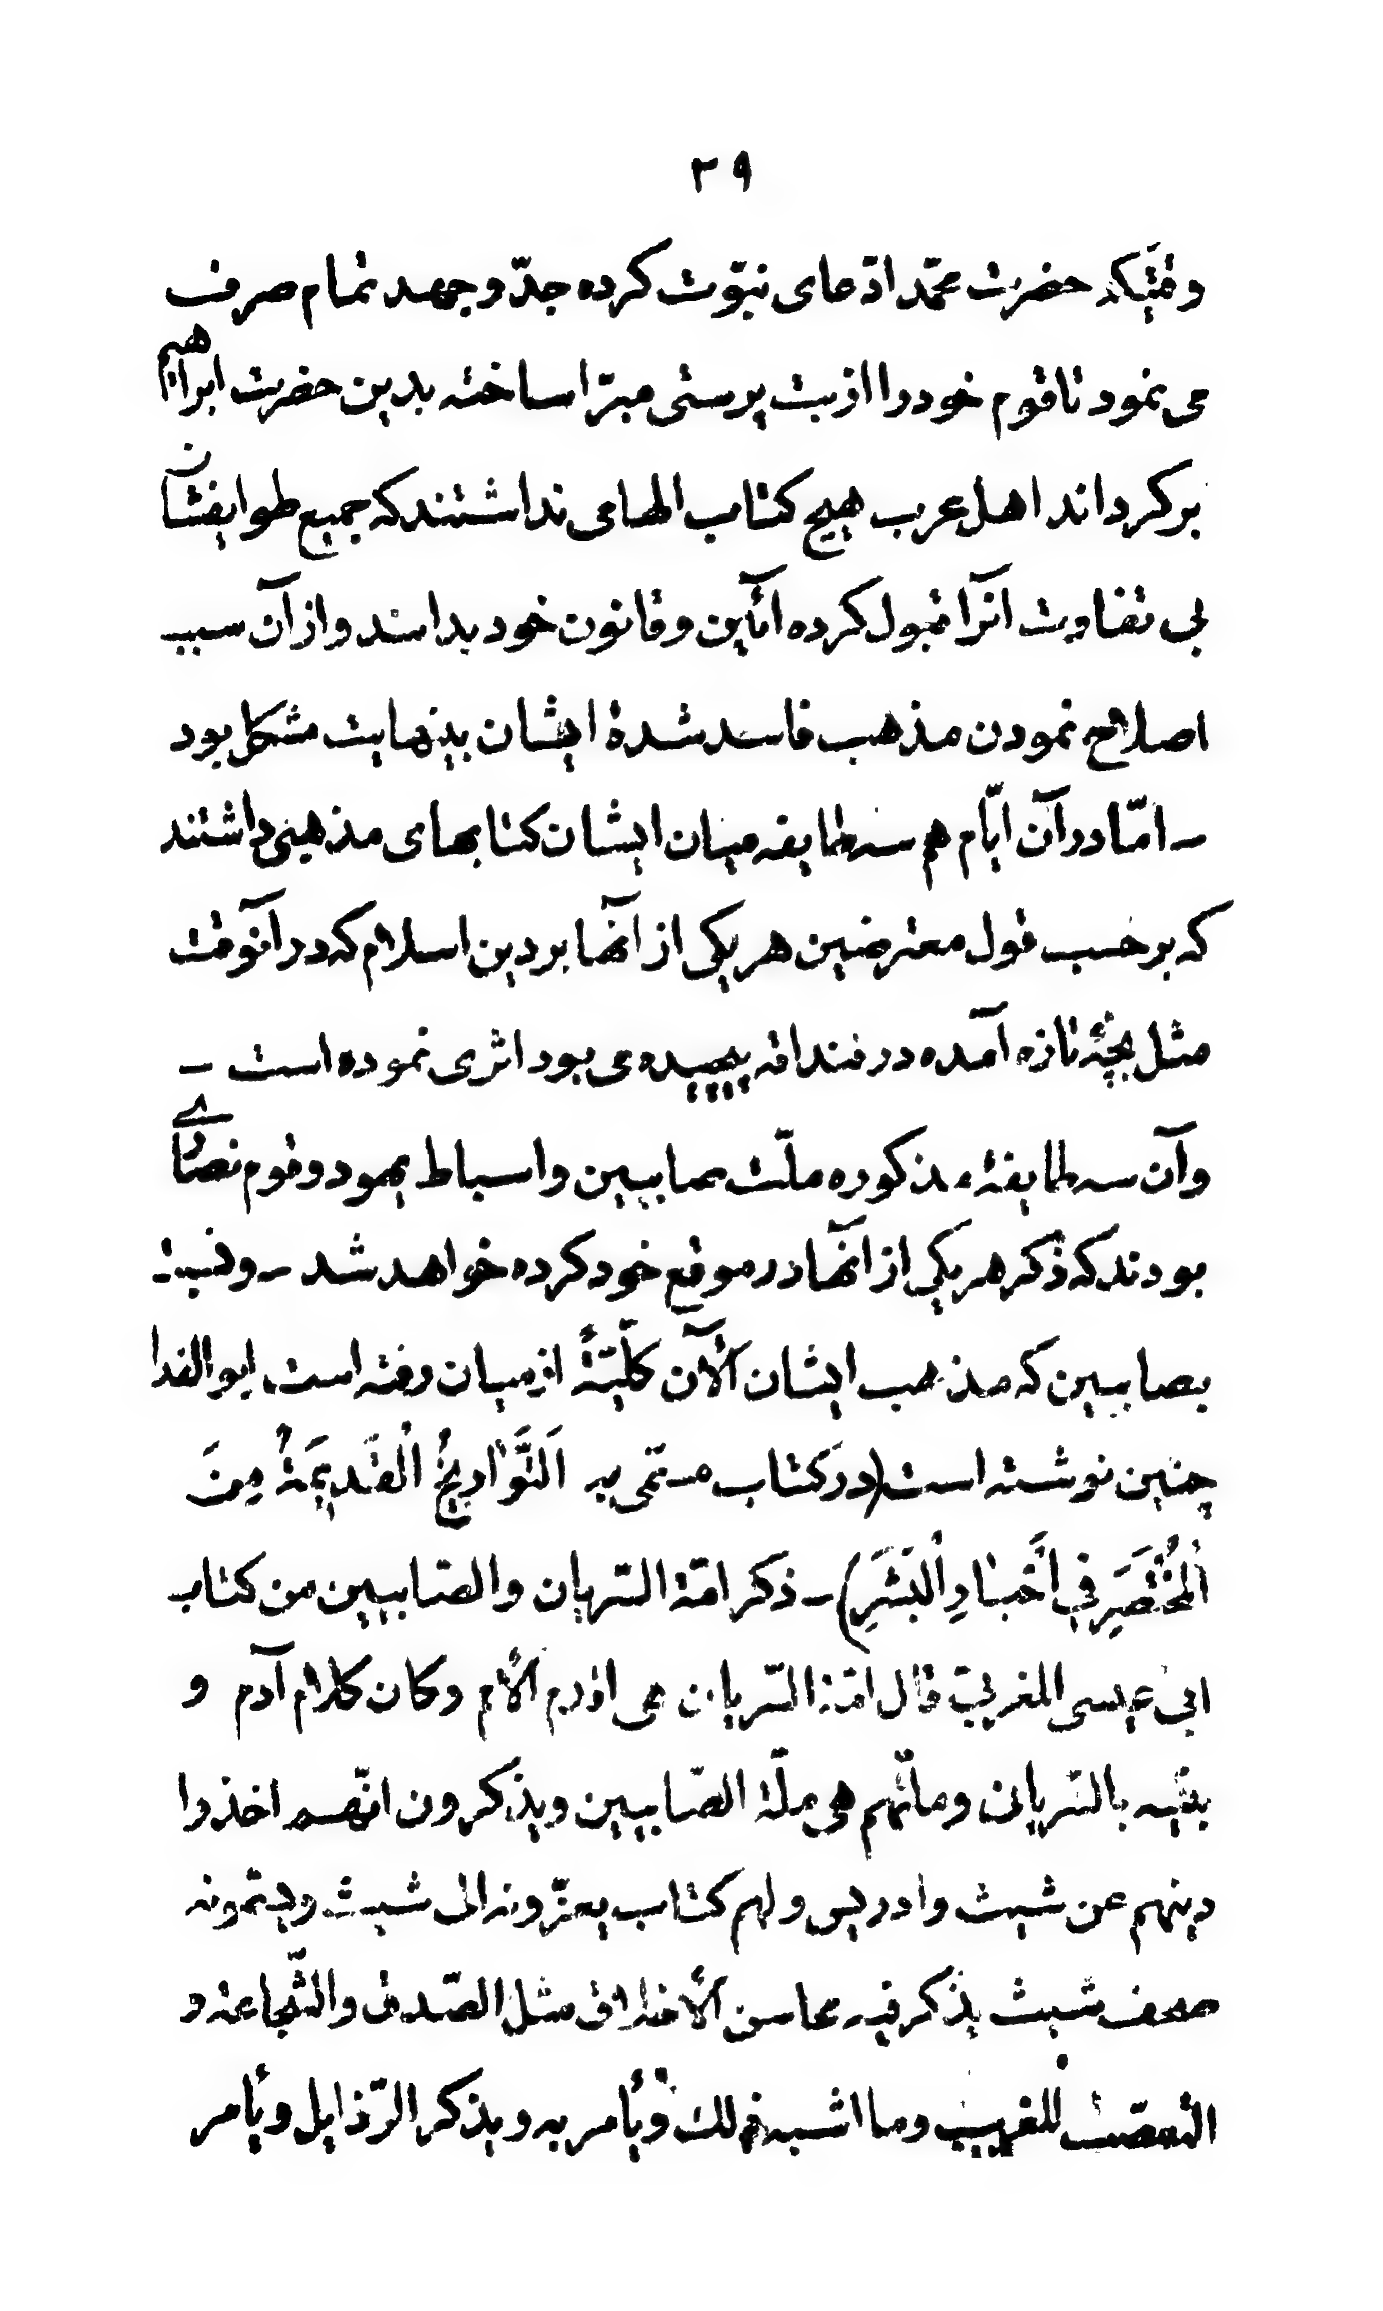 ۳۹
وقتیکه حضرت محمّد ادّعای نبوّت کرده جدّ و جهد تمام صرف
می نمود تا قوم خود را از بت پرستی مبرّا ساخته بدین حضرت ابراهیم
برگرداند اهل عرب هیچ کتاب الهامی نداشتند که جمیع طوایفشان
بی تفاوت آنرا قبول کرده آئین و قانون خود بدانند و از آن سبب
اصلاح نمودن مذهب فاسد شدهٔ ایشان بینهایت مشکل بود
ــ امّا در آن ایّام هم سه طایفه میان ایشان کتابهای مذهبی داشتند
که بر حسب قول معترضین هر یکی از آنها بر دین اسلام که در آنوقت
مثل بچّهٔ تازه آمده در قنداقه پیچیده می بود اثری نموده است ــ
و آن سه طایفهٔ مذکوره ملّت صابیین و اسباط یهود و قوم نصارٰی
بودند که ذکر هر یکی از آنها در موقع خود کرده خواهد شد ــ و نسبت
بصابیین که مذهب ایشان الآن کلّیّةً از میان رفته است ابو الفدا
چنین نوشته است (در کتاب مسمّی به اَلتَّوٰارِیخُ الْقَدیمَةُ مِنَ
اْلمُخْتَصَرِ فی اَخْبٰارِ الْبَشَرِ) ــ ذکر امّة السّریان والصّابیین من کتاب
ابی عیسی المغربیّ قال امّة السّریان هی اقدم الأمم وکان کلام آدم و
بنیه بالسّریانی وملّتهم هی ملّة الصّابیین ویذکرون انّهم اخذوا
دینهم عن شیث وادریس ولهم کتاب یعزّونه الی شیث ویسمّونه
صحف شیث یذکر فیه محاسن الأخلاق مثل الصّدق والشّجاعة و
التّعصّب للغریب وما اشبه ذلک ویأمر به ویذکر الرّذایل ویأمر